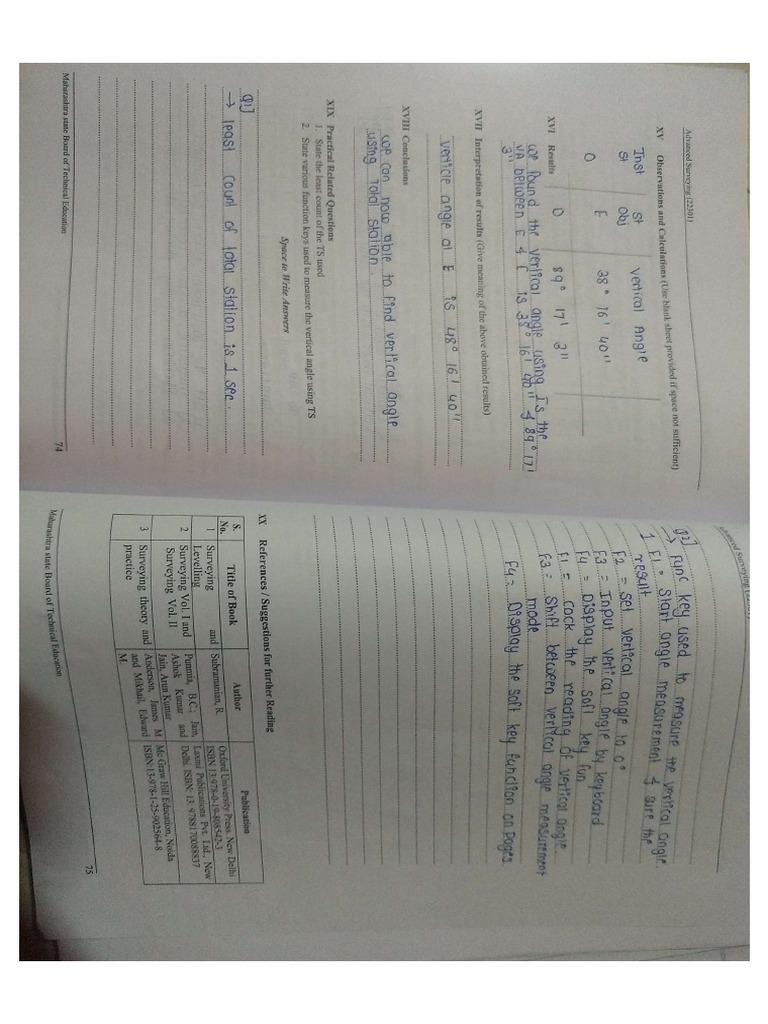 Advanced Surveying (22301)
XV Observations and Calculations (Use blank sheet provided if space not sufficient)
Inst st Vertical Angle
st Obj
O E 38° 16' 40"
D 89° 17' 3"
XVI Results
we found the vertical angle using Is the
VA between E & F is 38° 16' 40" & 89° 17'
3"
XVII Interpretation of results (Give meaning of the above obtained results)
verticle angle at E is 48° 16' 40"
XVIII Conclusions
we can now able to find vertical angle
using Total station
XIX Practical Related Questions
1. State the least count of the TS used
2. State various function keys used to measure the vertical angle using TS
Space to Write Answers
Q1]
→ least count of total station is 1 sec.
Maharashtra state Board of Technical Education 74
Advanced Surveying
Q2]
→ Func key used to measure the vertical angle.
1 F1 = Start angle measurement & sure the
result
F2 = set vertical angle to 0°
F3 = Input vertical angle by keyboard
F4 = Display the soft key fun
F1 = Cock the reading of vertical angle.
F3 = Shift between vertical angle measurement
mode
F4 = Display the soft key function on pages
XX References / Suggestions for further Reading
S. No. Title of Book Author Publication
1 Surveying and Levelling Subramanian, R. Oxford University Press, New Delhi ISBN 13:978-0-19-808542-3
2 Surveying Vol. I and Surveying Vol. II Punmia, B.C.; Jain, Ashok Kumar and Jain, Arun Kumar Laxmi Publications Pvt. Ltd., New Delhi. ISBN: 13: 9788170088837
3 Surveying theory and practice Anderson, James M and Mikhail, Edward M. Mc Graw Hill Education, Noida ISBN: 13-978-1-25-902564-8
Maharashtra state Board of Technical Education 75